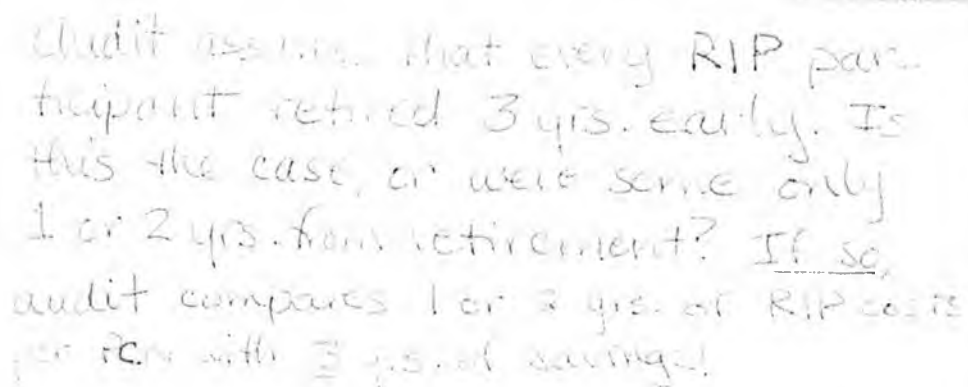 Audit assumes that every RIP par-
ticipant retired 3 yrs. early. Is
this the case, or were some only
1 or 2 yrs. from retirement? If so,
audit compares 1 or 2 yrs. of RIP costs
with 3 yrs. of savings!